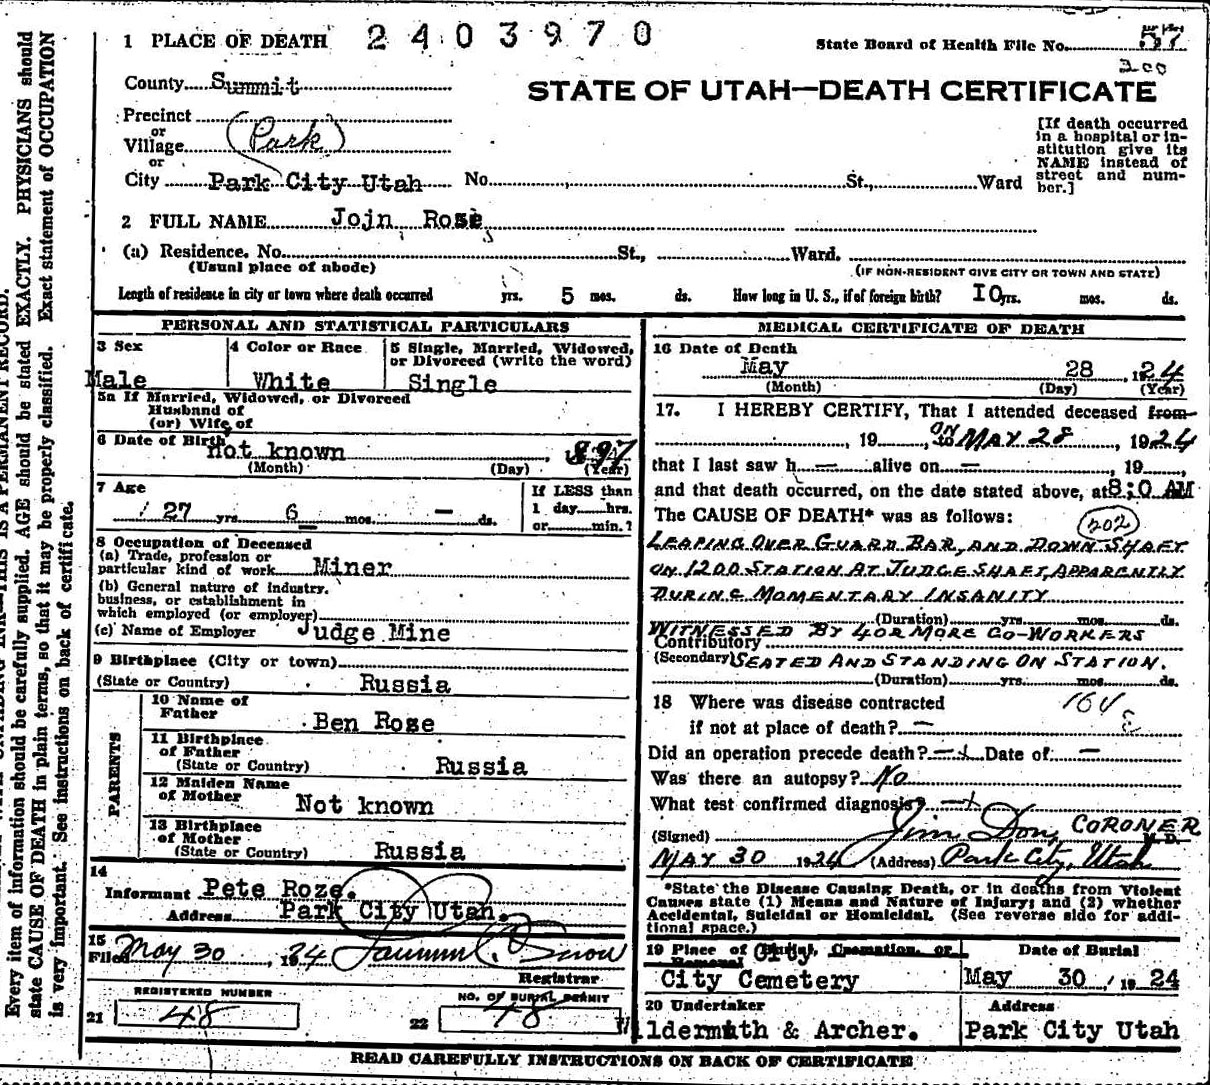 1 PLACE OF DEATH 2403970
State Board of Health File No. 57
300
County Summit
STATE OF UTAH—DEATH CERTIFICATE
Precinct
or
Village (Park)
or
City Park City Utah No. St., Ward
[If death occurred
in a hospital or in-
stitution give its
NAME instead of
street and num-
ber.]
2 FULL NAME Jojn Rose
s
(a) Residence. No. St., Ward.
(Usual place of abode) (IF NON-RESIDENT GIVE CITY OR TOWN AND STATE)
Length of residence in city or town where death occurred yrs. 5 mos. ds. How long in U. S., if of foreign birth? 10 yrs. mos. ds.
PERSONAL AND STATISTICAL PARTICULARS
3 Sex
Male
4 Color or Race
White
5 Single, Married, Widowed,
or Divorced (write the word)
Single
5a If Married, Widowed, or Divorced
Husband of
(or) Wife of
6 Date of Birth
Not known 897
(Month) (Day) (Year)
7 Age
27 yrs. 6 mos. — ds.
If LESS than
1 day hrs.
or min.?
8 Occupation of Deceased
(a) Trade, profession or
particular kind of work Miner
(b) General nature of industry,
business, or establishment in
which employed (or employer)
(c) Name of Employer Judge Mine
9 Birthplace (City or town)
(State or Country) Russia
PARENTS
10 Name of
Father Ben Roze
11 Birthplace
of Father
(State or Country) Russia
12 Maiden Name
of Mother Not known
13 Birthplace
of Mother
(State or Country) Russia
14
Informant Pete Roze.
Address Park City Utah.
15
Filed May 30, 1924
Registrar
REGISTERED NUMBER
21 48
NO. OF BURIAL PERMIT
22 48
MEDICAL CERTIFICATE OF DEATH
16 Date of Death
May 28, 1924
(Month) (Day) (Year)
17. I HEREBY CERTIFY, That I attended deceased from
, 19 , ON to MAY 28, 1924
that I last saw h — alive on —, 19 ,
and that death occurred, on the date stated above, at 8;0 AM
The CAUSE OF DEATH* was as follows: (202)
LEAPING OVER GUARD BAR, AND DOWN SHAFT
ON 1200 STATION AT JUDGE SHAFT, APPARENTLY
DURING MOMENTARY INSANITY
(Duration) yrs. mos. ds.
WITNESSED BY 4 OR MORE CO-WORKERS
Contributory
(Secondary) SEATED AND STANDING ON STATION.
(Duration) yrs. mos. ds.
18 Where was disease contracted 164
if not at place of death? —
Did an operation precede death? — Date of —
Was there an autopsy? No
What test confirmed diagnosis? —
(Signed) Jim Don, CORONER M.D.
MAY 30 1924 (Address) Park City, Utah
*State the Disease Causing Death, or in deaths from Violent
Causes state (1) Means and Nature of Injury; and (2) whether
Accidental, Suicidal or Homicidal. (See reverse side for addi-
tional space.)
19 Place of Burial, Cremation, or
Removal City
City Cemetery
Date of Burial
May 30, 1924
20 Undertaker
Wildermuth & Archer.
Address
Park City Utah
READ CAREFULLY INSTRUCTIONS ON BACK OF CERTIFICATE
RECORD.
Every item of information should be carefully supplied. AGE should be stated EXACTLY. PHYSICIANS should
state CAUSE OF DEATH in plain terms, so that it may be properly classified. Exact statement of OCCUPATION
is very important. See instructions on back of certificate.